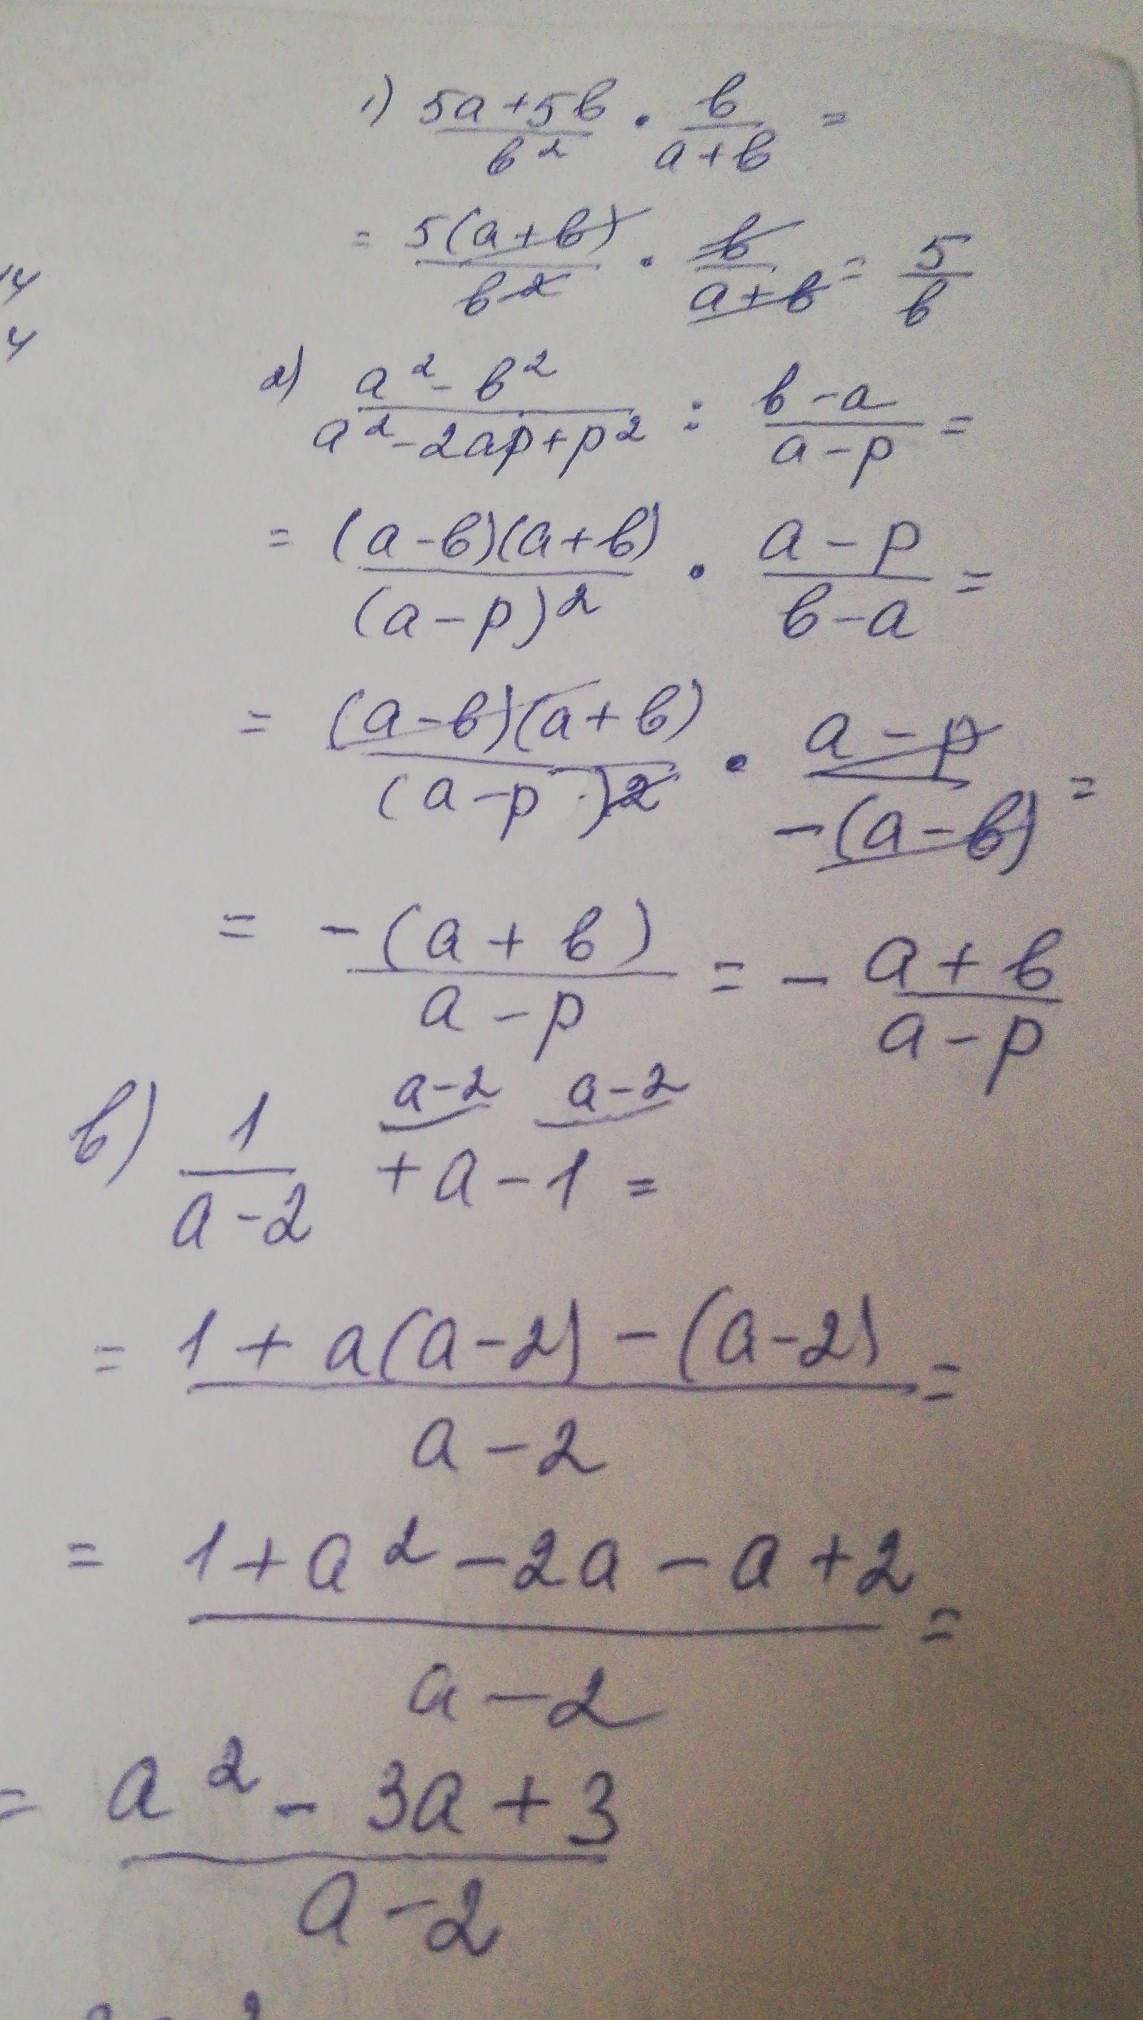 14
4
1) (5a+5b)/b² · b/(a+b) =
= 5(a+b)/b² · b/(a+b) = 5/b
2) (a²-b²)/(a²-2ap+p²) : (b-a)/(a-p) =
= (a-b)(a+b)/(a-p)² · (a-p)/(b-a) =
= (a-b)(a+b)/(a-p)² · (a-p)/-(a-b) =
= -(a+b)/(a-p) = - (a+b)/(a-p)
a-2 a-2
в) 1/(a-2) + a - 1 =
= (1+a(a-2)-(a-2))/(a-2) =
= (1+a²-2a-a+2)/(a-2) =
= (a²-3a+3)/(a-2)